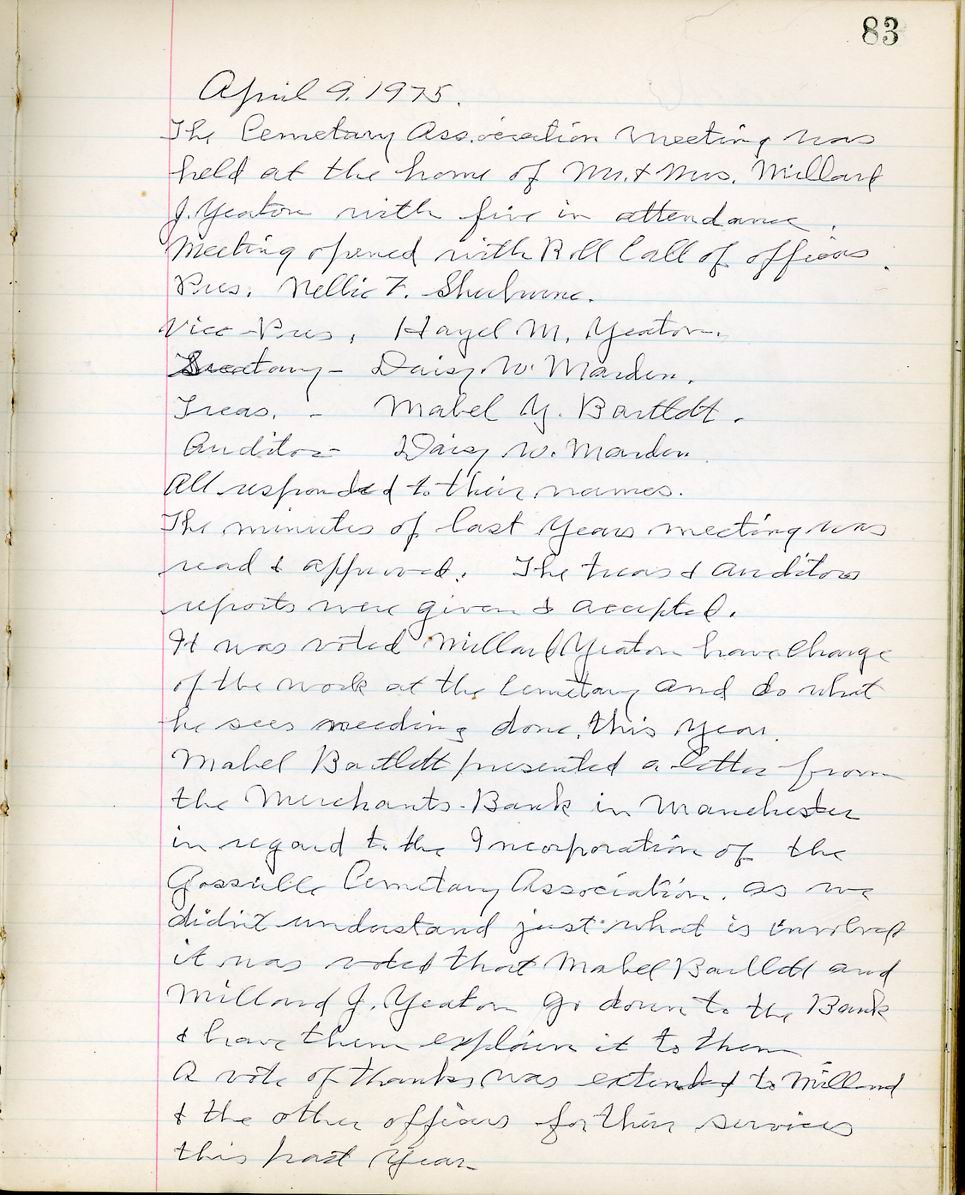 83
April 9, 1975.
The Cemetary Association meeting was
held at the home of Mr. & Mrs. Millard
J. Yeaton with five in attendance.
Meeting opened with Roll Call of officers.
Pres. Nellie F. Sherburne.
Vice-Pres, Hazel M. Yeaton.
Secretary - Daisy W. Marden.
Treas. - Mabel Y. Bartlett.
Auditor - Daisy W. Marden.
All responded to their names.
The minutes of last Years meeting was
read & approved. The treas & auditors
reports were given & accepted.
It was voted Millard Yeaton have charge
of the work at the Cemetary and do what
he sees needing done, this year.
Mabel Bartlett presented a letter from
the Merchants-Bank in Manchester
in regard to the Incorporation of the
Gossville Cemetary Association. as we
didn't understand just what is involved
it was voted that Mabel Bartlett and
Millard J. Yeaton go down to the Bank
& have them explain it to them
A vote of thanks was extended to Millard
& the other officers for their services
this past year